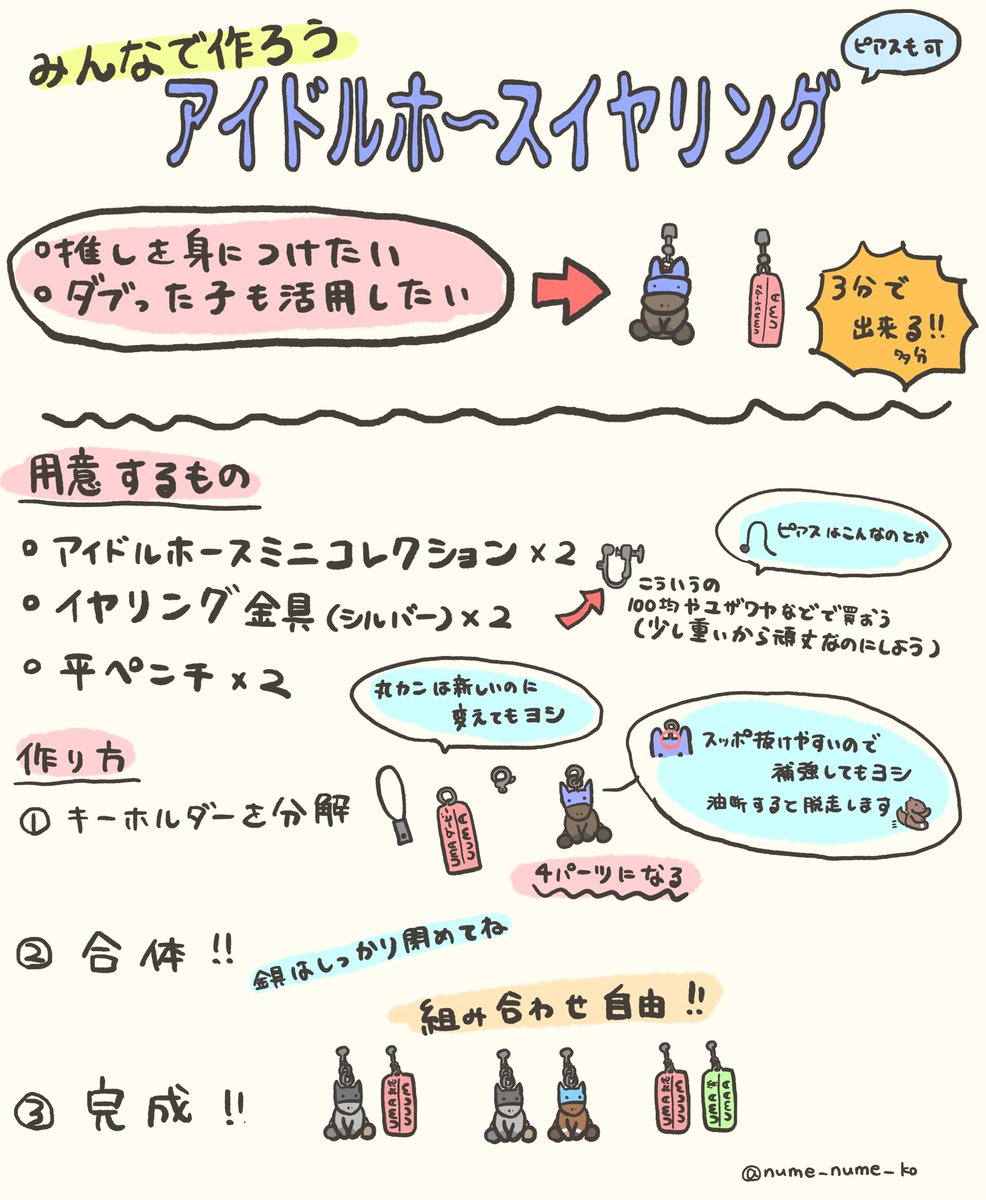 みんなで作ろう
ピアスも可
アイドルホースイヤリング
○推しを身につけたい
○ダブった子も活用したい
UMAステークス
UMA
3分で
出来る!!
多分
用意するもの
○アイドルホースミニコレクション×2
ピアスはこんなのとか
○イヤリング金具(シルバー)×2
こういうの
100均やユザワヤなどで買おう
(少し重いから頑丈なのにしよう)
○平ペンチ×2
丸カンは新しいのに
変えてもヨシ
スッポ抜けやすいので
補強してもヨシ
油断すると脱走します
作り方
①キーホルダーを分解
4パーツになる
②合体!!
金具はしっかり閉めてね
組み合わせ自由!!
③完成!!
@nume_nume_ko